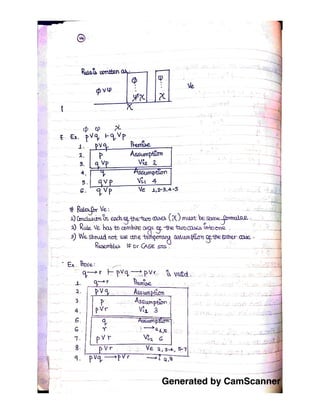 Rule is written as
φ ψ
⋮ ⋮
φ∨ψ χ χ Ve
χ
φ ψ χ
Ex. p∨q ⊢ q∨p
1. p∨q Premise
2. p Assumption
3. q∨p Vi₂ 2
4. q Assumption
5. q∨p Vi₁ 4
6. q∨p Ve 1,2-3,4-5
# Rules for Ve:
1) Conclusion in each of the two cases (χ) must be same formula.
2) Rule Ve has to combine args of the two cases into one
3) We should not use the temporary assumption of the other case.
Resembles IF or CASE sts.
Ex Prove:
q→r ⊢ p∨q→p∨r is valid.
1. q→r Premise
2. p∨q Assumption
3. p Assumption
4. p∨r Vi₁ 3
5. q Assumption
6. r
7. p∨r Vi₂ 6
8. p∨r Ve 2,3-4,5-7
9. p∨q→p∨r →i 2,8
Generated by CamScanner